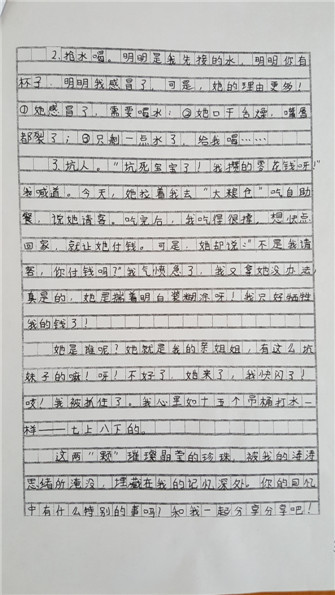 2.抢水喝。明明是我先接的水,明明你有
杯子,明明我感冒了,可是,她的理由更多!
①她感冒了,需要喝水;②她口干舌燥,嘴唇
都裂了;③只剩一点水了,给我喝……
3.坑人。“坑死宝宝了!我攒的零花钱呀!”
我喊道。今天,她拉着我去“大粮仓”吃自助
餐,说她请客。吃完后,我吃得很撑,想快点
回家,就让她付钱。可是,她却说:“不是我请
客,你付钱吗?”我气愤急了,我又拿她没办法,
真是的,她是揣着明白装糊涂呀!我只好牺牲
我的钱了!
她是谁呢?她就是我的亲姐姐,有这么坑
妹子的嘛!呀!不好了,她来了,我快闪了!
哎!我被抓住了。我心里如十五个吊桶打水一
样——七上八下的。
这两“颗”璀璨晶莹的珍珠,被我的
思绪所淹没,埋藏在我的记忆深处。你的回忆
中有什么特别的事吗?和我一起分享分享吧!